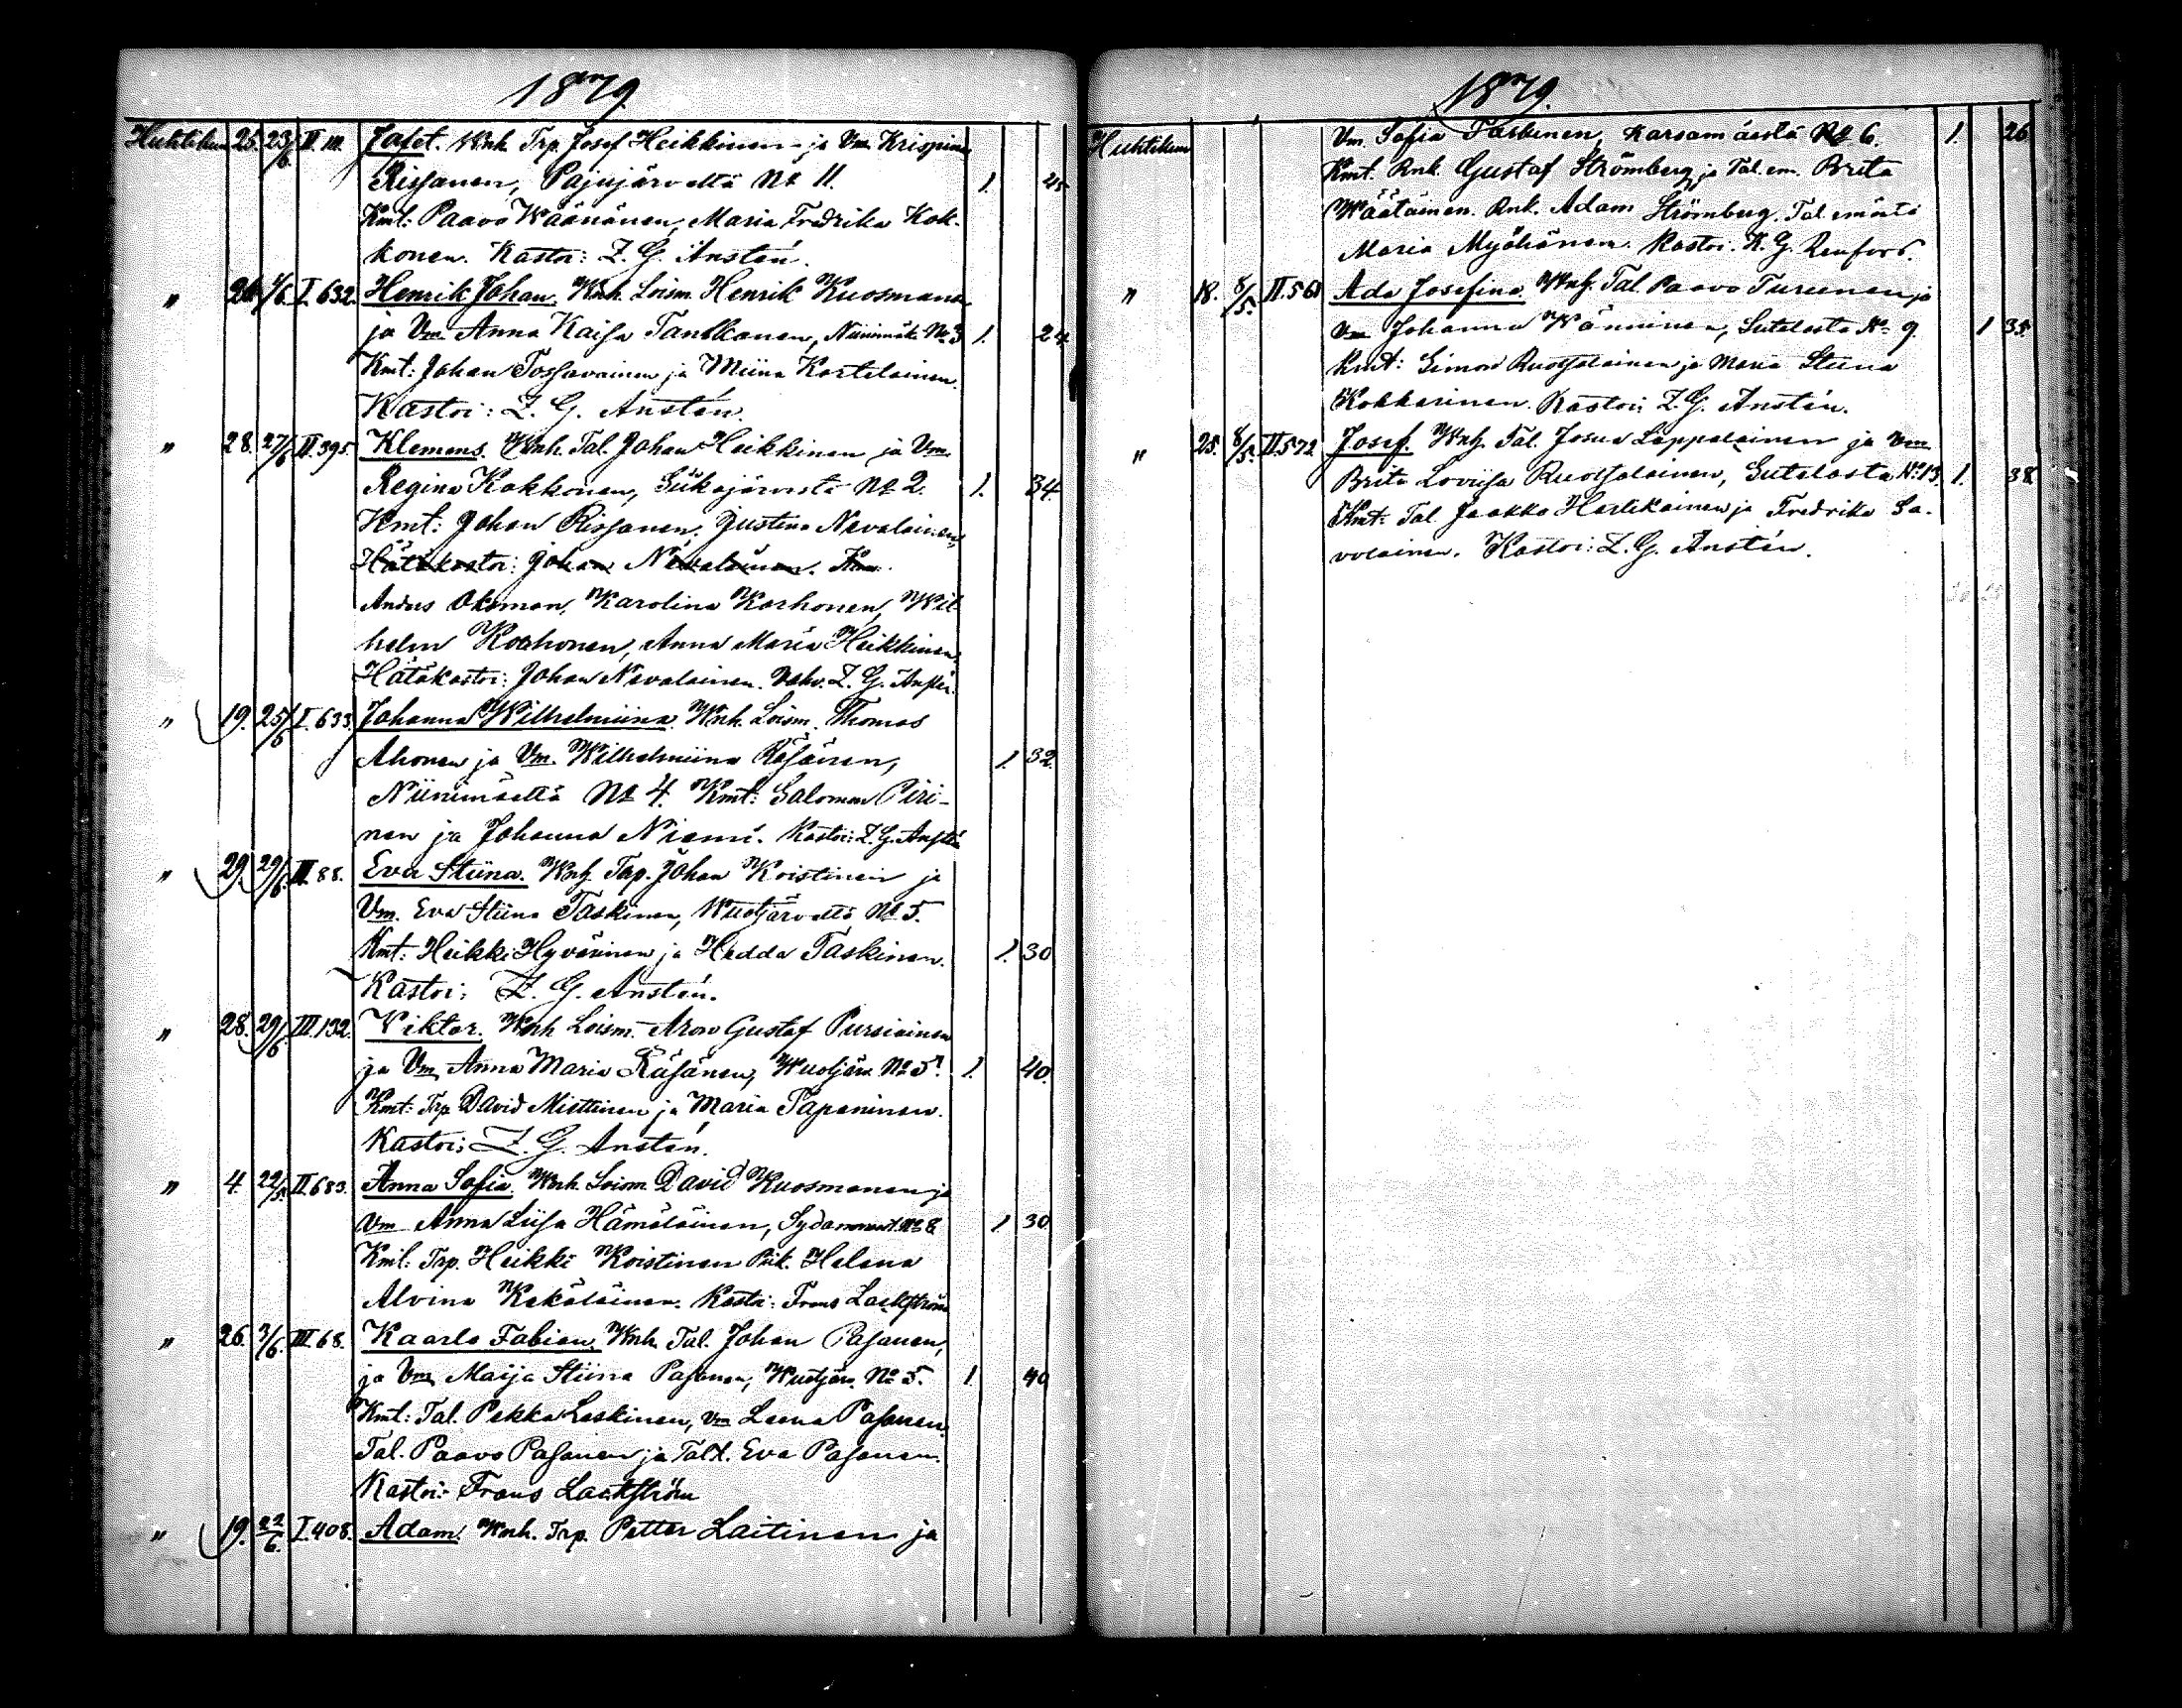 1879.
Huhtikuu 25. 23/6. II. 111. Jafet. Wnh. Trp. Josef Heikkinen ja Vm. Krispina
Rissanen, Pajujärveltä No 11. 1. 45
Kmt: Paavo Wäänänen, Maria Fredrika Kok-
konen. Kastoi: Z. G. Anstén.
" 26. 1/6. I. 632. Henrik Johan. Wnh. Loism. Henrik Kuosmanen
ja Vm. Anna Kaisa Tanskanen, Niinimäki No 3 1. 24
Kmt: Johan Tossavainen ja Miina Kortelainen.
Kastoi: Z. G. Anstén.
" 28. 27/6. II. 395. Klemens. Wnh. Tal. Johan Heikkinen ja Vm.
Regina Kokkonen, Siikajärvestä No 2. 1. 34.
Kmt: Johan Rissanen, Justina Nevalainen,
Hätäkastoi: Johan Nevalainen.
Anders Oksman, Karolina Korhonen, Wil-
helm Korhonen, Anna Maria Heikkinen.
Hätäkastoi: Johan Nevalainen. Vahv. Z. G. Anstén.
" 19. 25/6 I. 633. Johanna Wilhelmiina. Wnh. Loism. Thomas
Ahonen ja Vm. Wilhelmiina Räsänen, 1. 32.
Niinimäeltä No 4. Kmt: Salomon Piri-
nen ja Johanna Niemi. Kastoi: Z. G. Anstén
" 29. 29/6. III. 88. Eva Stiina. Wnh. Trp. Johan Koistinen ja
Vm. Eva Stiina Taskinen, Wuotjärveltä No 5.
Kmt: Heikki Hyvärinen ja Hedda Taskinen. 1. 30
Kastoi: Z. G. Anstén.
" 28. 29/6 III. 132. Viktor. Wnh. Loism. Aron Gustaf Pursiainen
ja Vm. Anna Maria Räsänen, Wuotjärv. No 5. 1. 40.
Kmt: Trp. David Miettinen ja Maria Tapaninen.
Kastoi: Z. G. Anstén.
" 4. 22/5. II. 683. Anna Sofia. Wnh. Loism. David Kuosmanen ja
Vm. Anna Liisa Hämäläinen, Sydanmant. No 8 1. 30
Kmt: Trp. Heikki Koistinen Piik. Helena
Alvina Kekäläinen. Kastoi: Frans Lackström
" 26. 7/6. III. 68. Kaarlo Fabian. Wnh. Tal. Johan Pasanen,
ja Vm. Maija Stiina Pasanen, Wuotjärv. No 5. 1. 40
Kmt: Tal. Pekka Leskinen, Vm Leena Pasanen.
Tal. Paavo Pasanen ja Tal.t. Eva Pasanen.
Kastoi: Frans Lackström
" 19. 22/6. I. 408. Adam. Wnh. Trp. Petter Laitinen ja
1879.
Huhtikuu Vm. Sofia Taskinen, Karsamäestä No 6. 1. 26
Kmt. Rnk. Gustaf Strömberg ja Tal. em. Brita
Väätäinen. Rnk. Adam Strömberg. Tal. emäntä
Maria Myöhänen. Kastoi. K. G. Renfors.
" 18. 8/5. II. 560 Ada Josefina. Wnh. Tal. Paavo Turunen ja
Vm Johanna Wänninen, Sutelasta No 9. 1 35.
Kmt: Simon Ruotsalainen ja Maria Stiina
Kokkarinen. Kastoi: Z. G. Anstén.
" 25. 8/5. II. 572 Josef. Wnh. Tal. Josua Lappalainen ja Vm
Brita Loviisa Ruotsalainen, Sutelasta No 13. 1. 38
Kmt: Tal. Jaakko Hartikainen ja Fredrika Sa-
volainen. Kastoi: Z. G. Anstén.